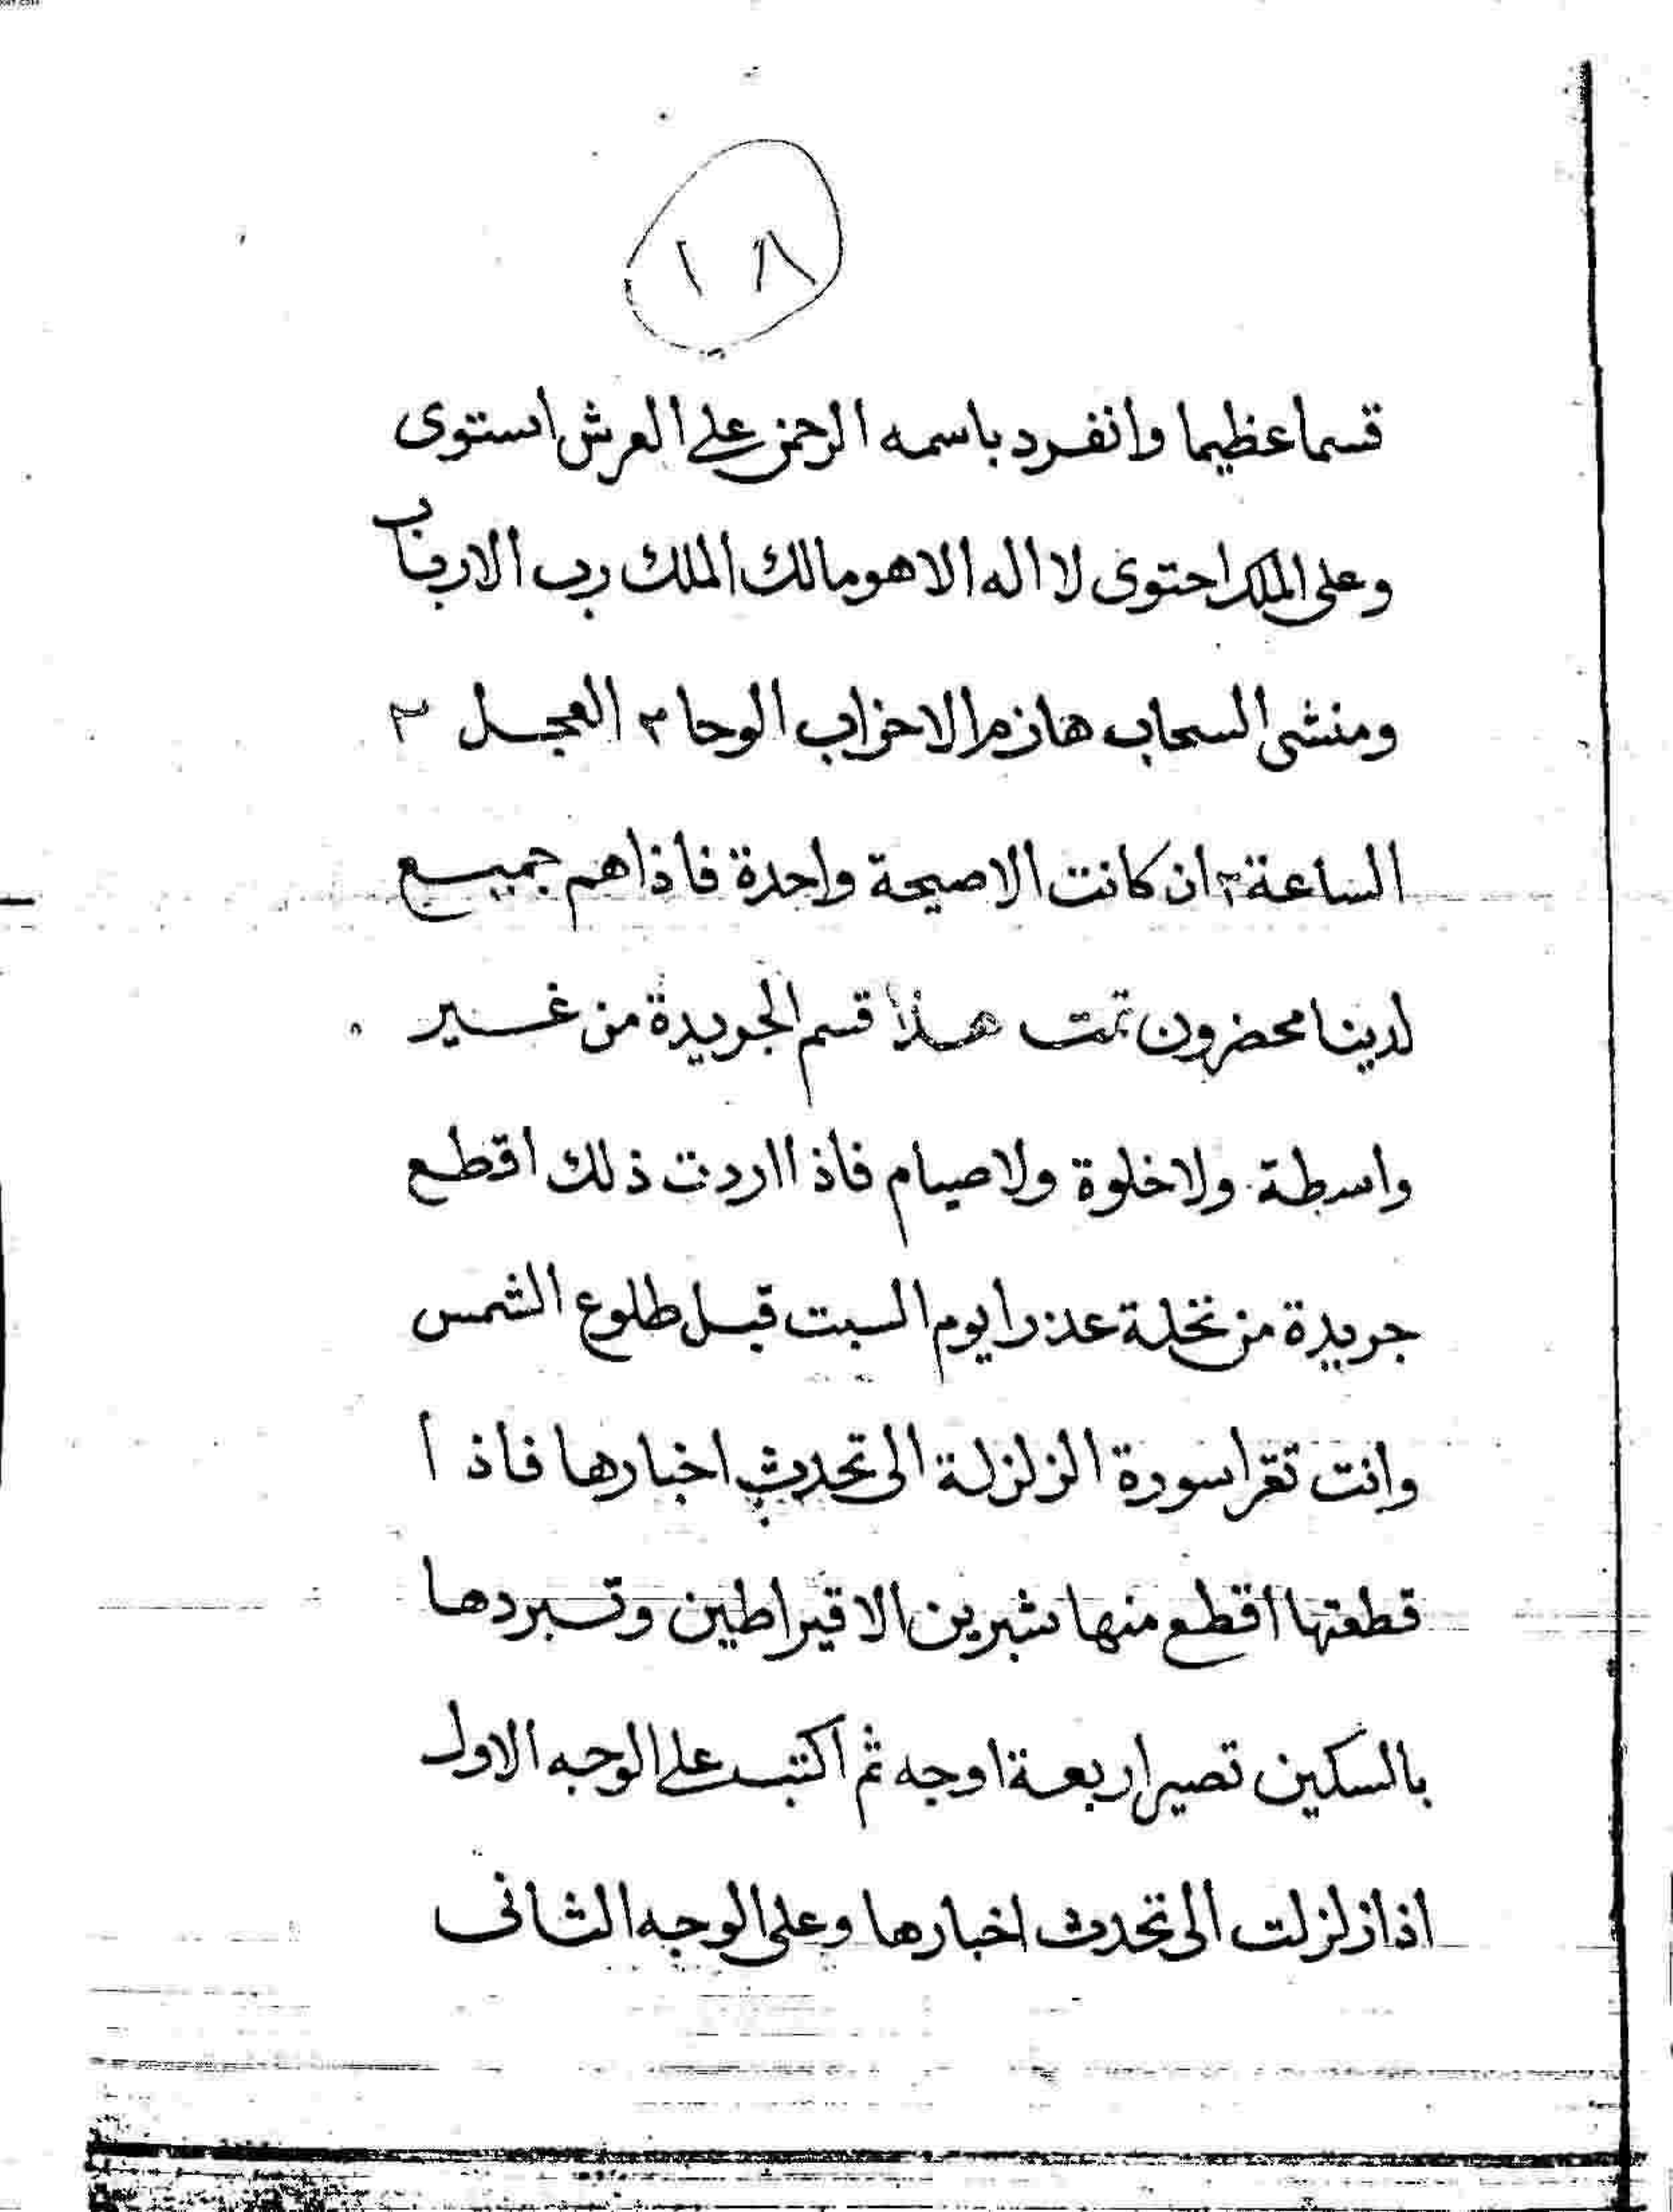 ١٨
قسما عظيما وانفرد باسمه الرحمن على العرش استوى
وعلى الملك احتوى لا اله الا هو مالك الملك رب الارباب
ومنشى السحاب هازم الاحزاب الوحا ٣ العجل ٣
الساعة ٣ ان كانت الا صيحة واحدة فاذا هم جميع
لدينا محضرون تمت هذا قسم الجريدة من غير
واسطة ولا خلوة ولا صيام فاذا اردت ذلك اقطع
جريدة من نخلة عذرا يوم السبت قبل طلوع الشمس
وانت تقرا سورة الزلزلة الى تحدث اخبارها فاذا
قطعتها اقطع منها شبرين الا قيراطين وتبردها
بالسكين تصير اربعة اوجه ثم اكتب على الوجه الاول
اذا زلزلت الى تحدث اخبارها وعلى الوجه الثانى